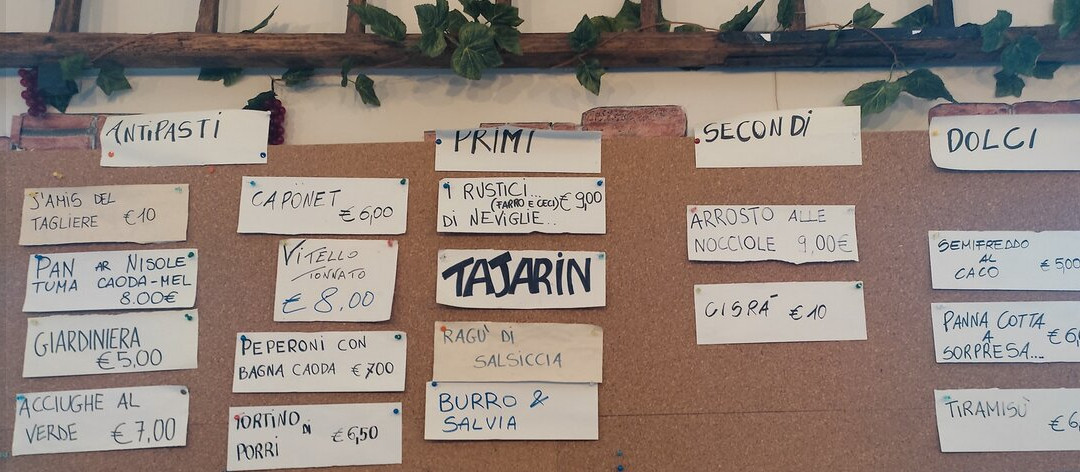 ANTIPASTI
J'AMIS DEL
TAGLIERE €10
PAN AR NISOLE
TUMA CAODA-MEL
8.00€
GIARDINIERA
€5,00
ACCIUGHE AL
VERDE €7,00
CAPÖNET
€6,00
VITELLO
TONNATO
€8.00
PEPERONI CON
BAGNA CAODA €7,00
TORTINO DI
PORRI €6,50
PRIMI
I RUSTICI...
(FARRO E CECI) €9,00
DI NEVIGLIE...
TAJARIN
RAGU' DI
SALSICCIA
BURRO &
SALVIA
SECONDI
ARROSTO ALLE
NOCCIOLE 9,00€
CISRÀ €10
DOLCI
SEMIFREDDO
AL
CACO €5,00
PANNA COTTA
A €6,
SORPRESA....
TIRAMISÙ
€6,